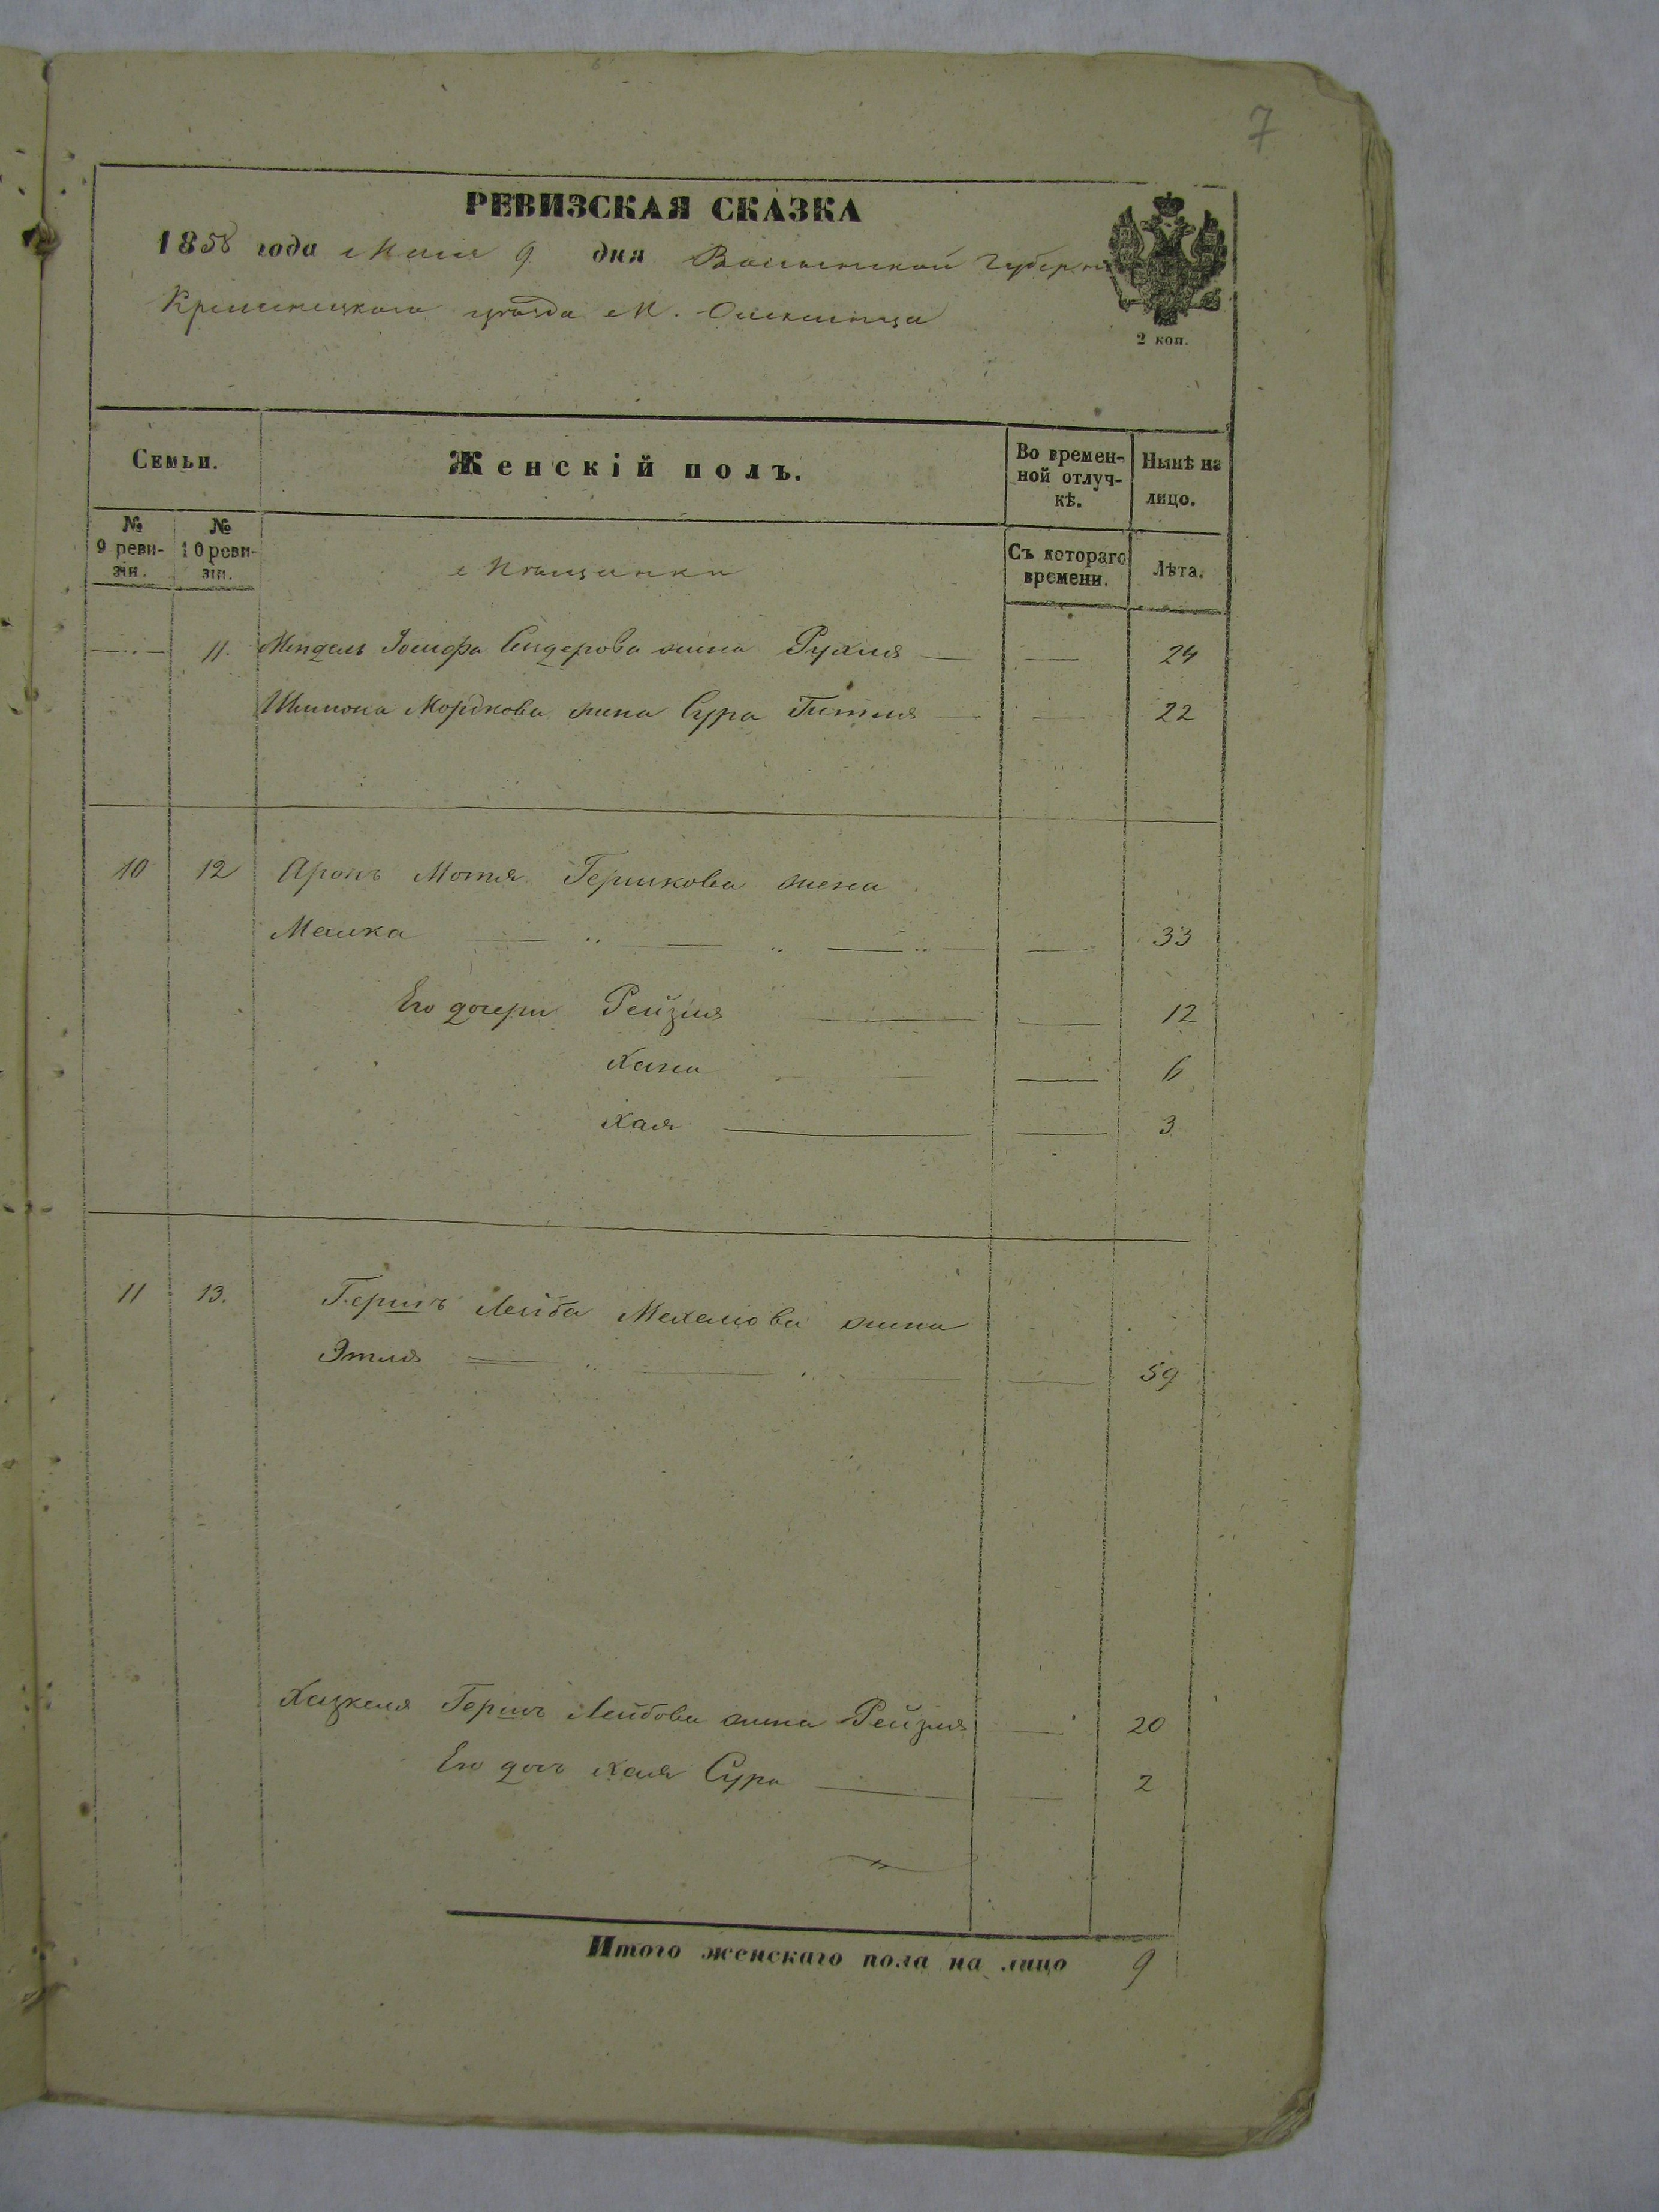 7
РЕВИЗСКАЯ СКАЗКА
1858 года Мая 9 дня Волынской Губерніи
Кременецкаго уѣзда М. Олексинца
2 коп.
Семьи.
Женскій полъ.
Во времен-
ной отлуч-
кѣ.
Нынѣ на
лицо.
№
9 реви-
зіи.
№
10 реви-
зіи.
Мѣщанки
Съ котораго
времени.
Лѣта.
11. Мендель Іосифа Сендерова жена Рухля 24
Шимона Мордкова жена Сура Гитля 22
10 12 Аронъ Мотя Гершкова жена
Малка 33
Его дочери Рейзля 12
Хана 6
Хая 3
11 13. Гершъ Лейба Мехелова жена
Этля 59
Хацкеля Гершъ Лейбова жена Рейзля 20
Его дочь Хая Сура 2
Итого женскаго пола на лицо 9